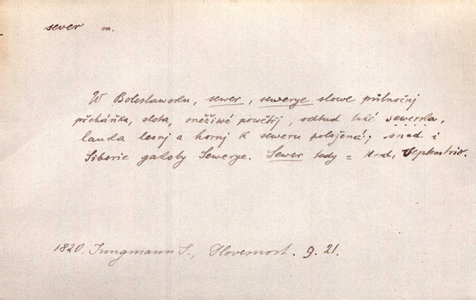 sewer m.
W Boleslawsku, sewer, sewerye slowe půlnočnj
přeháňka, slota, sněžiwé powětřj, odtud také sewerka,
lauka lesnj a hornj k seweru položená; snad i
Siberie gakoby Sewerye. Sewer tedy =
1820. Jungmann J., Slovesnost. 9. 21.